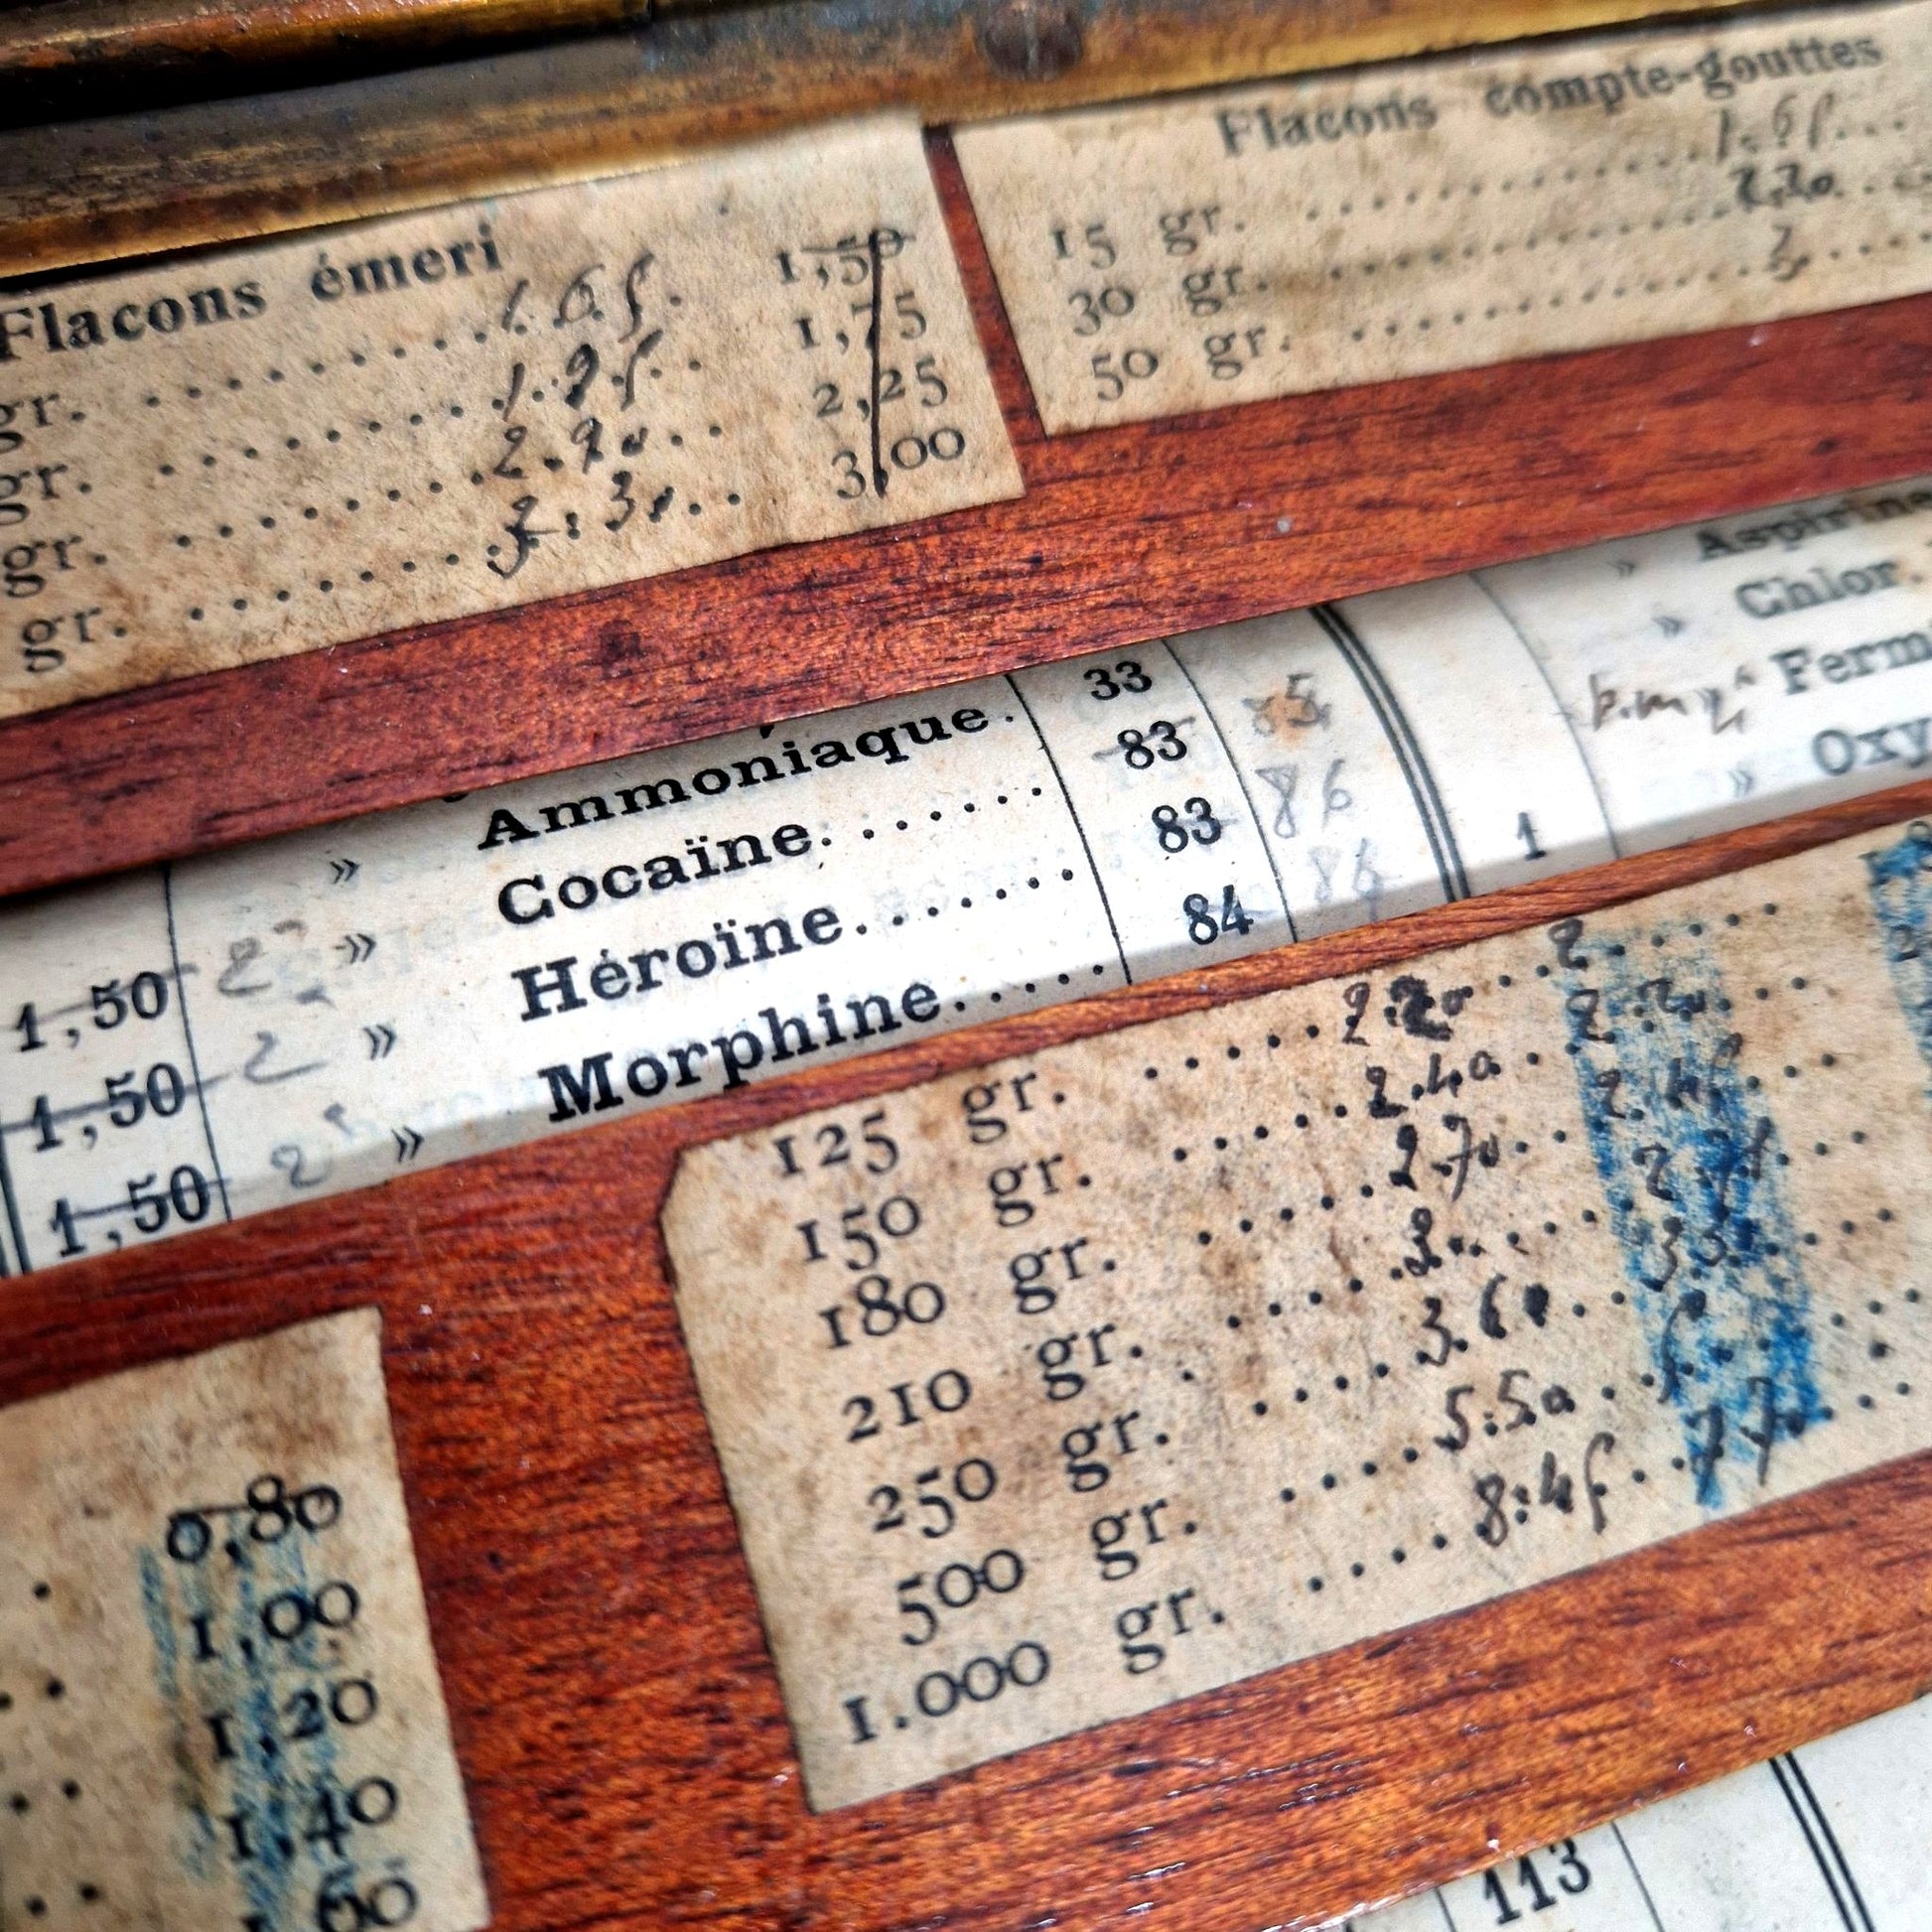 Flacons émeri
gr. .......... 1.65. 1,50
gr. .......... 1.95. 1,75
gr. .......... 2.90. 2,25
gr. .......... 3.30. 3,00
Flacons compte-gouttes
15 gr. .......... 1.65
30 gr. .......... 2.20
50 gr. .......... 3.
» Ammoniaque. 33
1,50 2 » Cocaïne. 83 86
1,50 2 » Héroïne. 83 86
1,50 2 » Morphine. 84
» Aspirine
» Chlor.
Ferm
1 » Oxy
125 gr. ...... 2.20 ... 2
150 gr. ...... 2.40 ... 2.20
180 gr. ...... 2.70 ... 2.45
210 gr. ...... 3.
250 gr. ...... 3.60
500 gr. ...... 5.50
1.000 gr. .... 8.45 ... 7.70
0,80
1,00
1,20
1,40
1,60
113